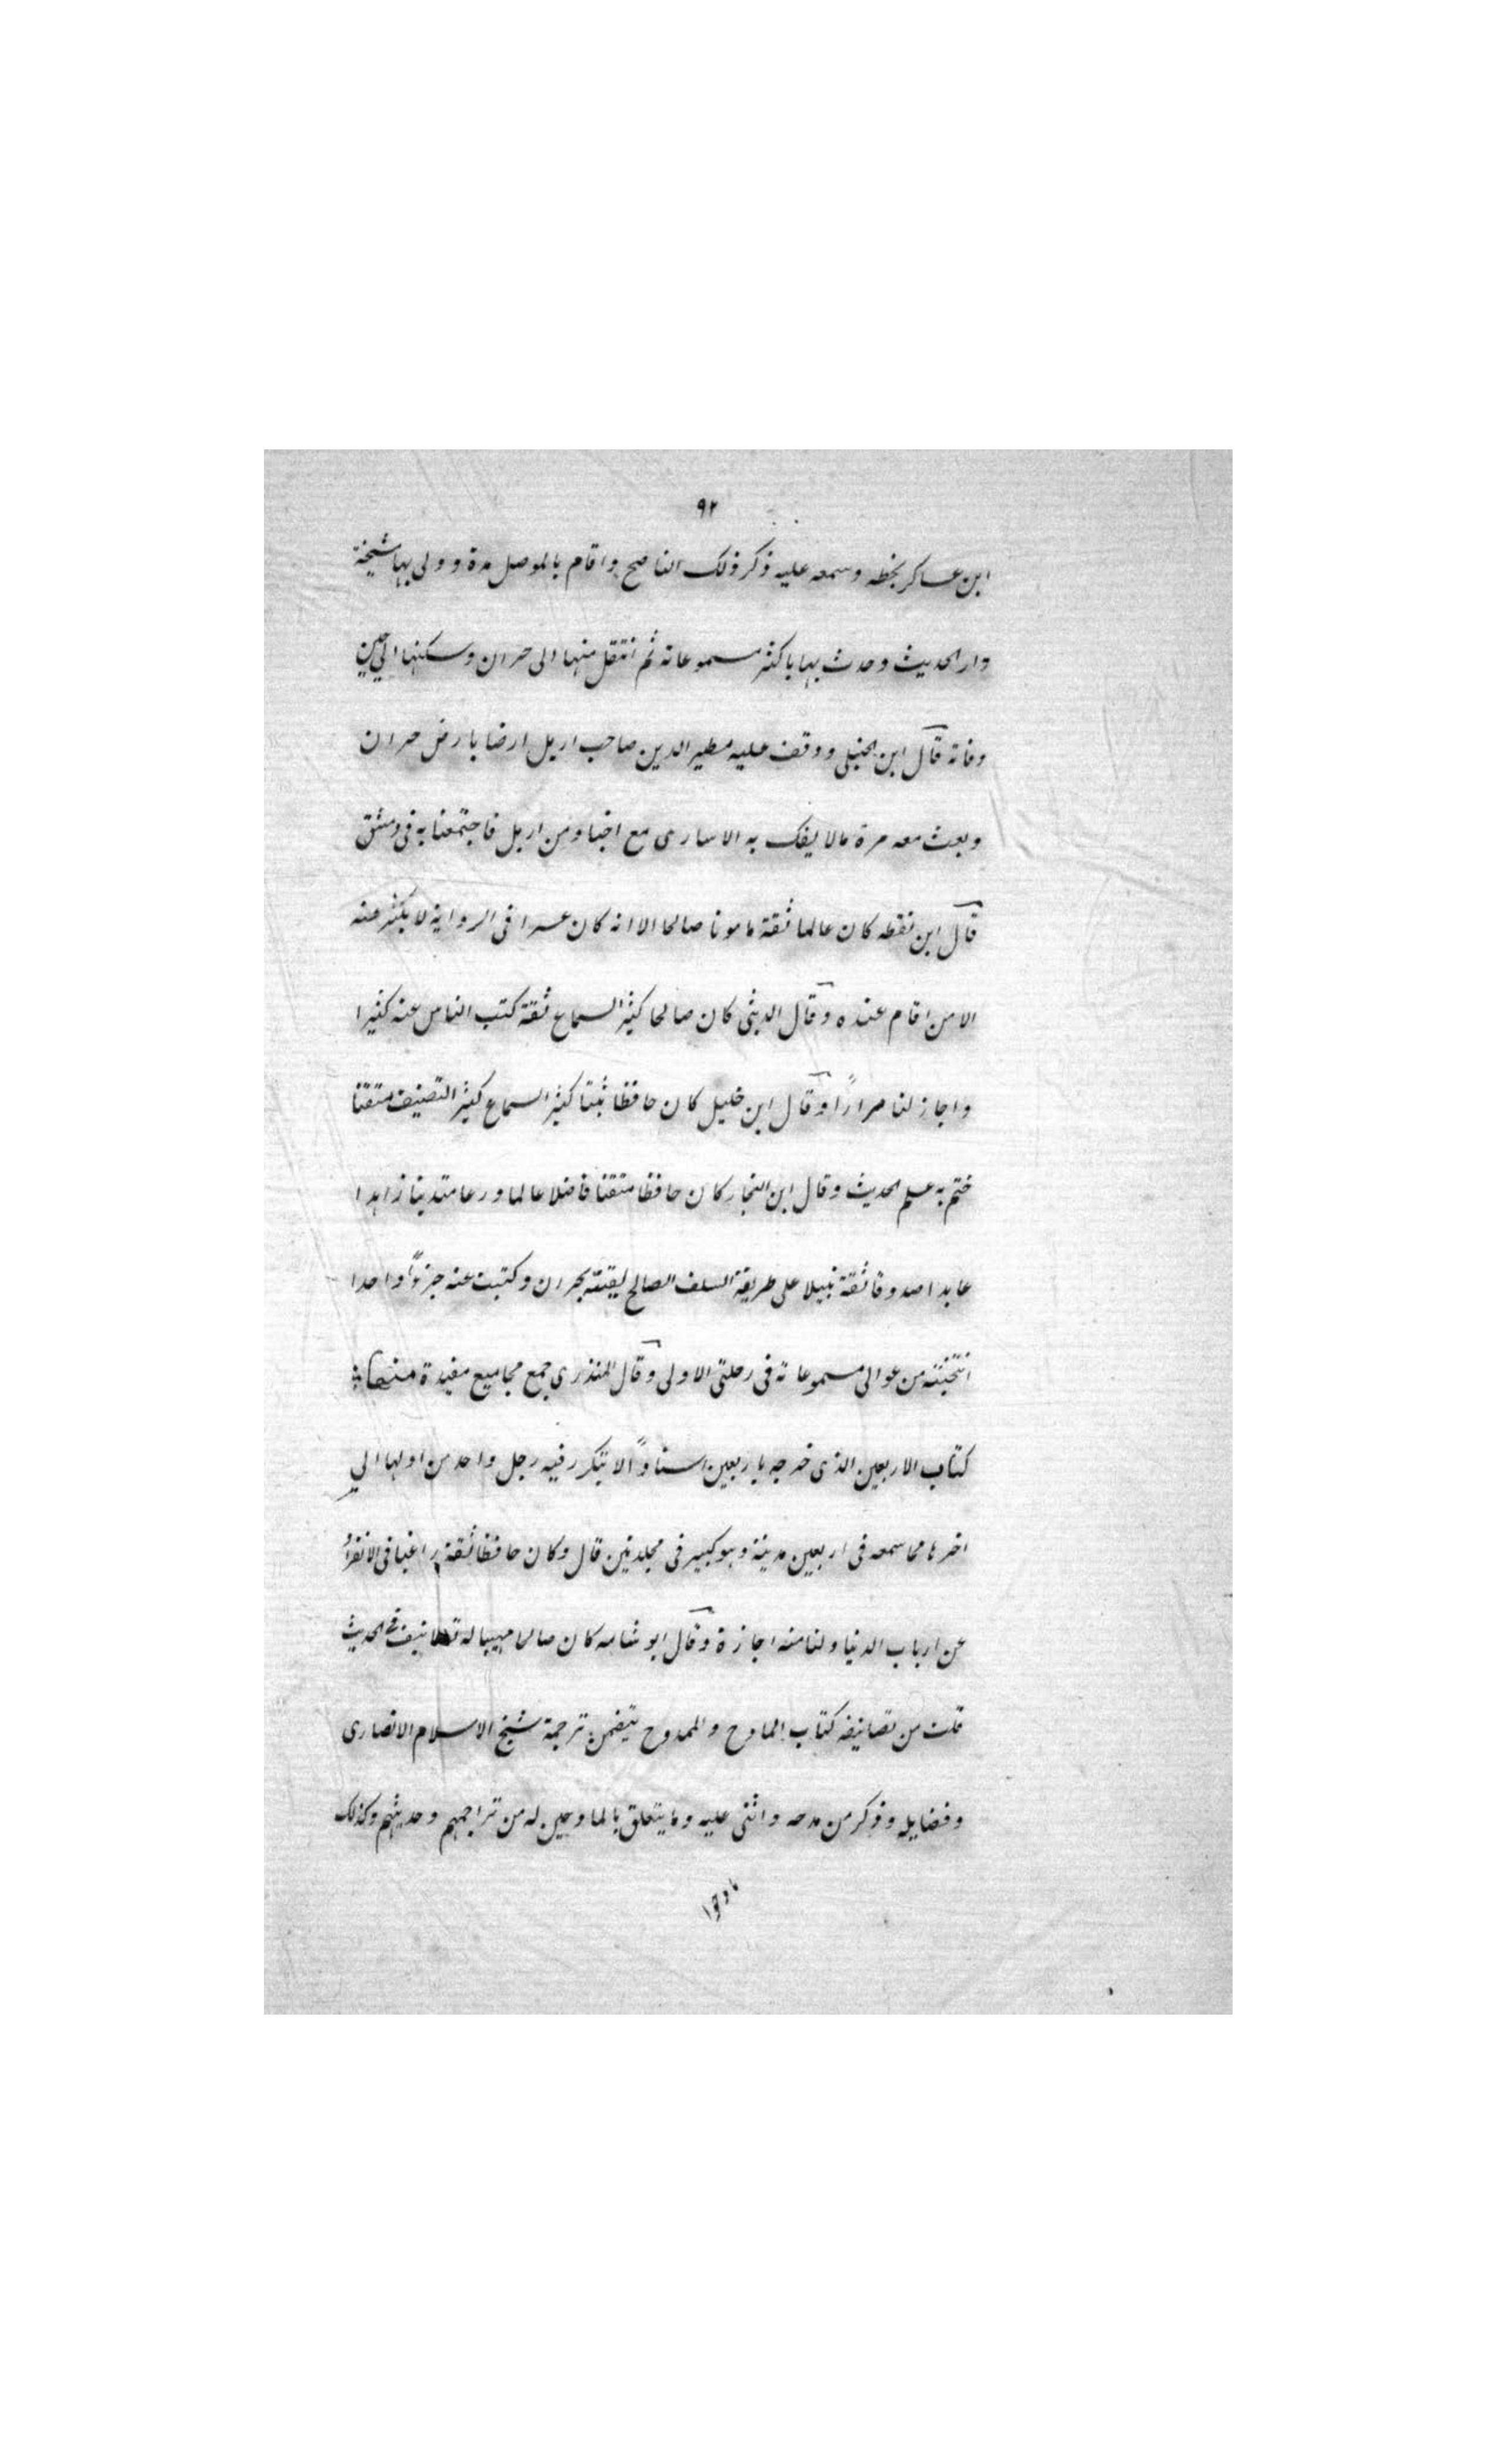 ٩٢
ابن عساكر بخطه وسمعه عليه ذكر ذلك الناصح واقام بالموصل مدة وولى بها مشيخة
دار الحديث وحدث بها باكثر مسموعاته ثم انتقل منها الى حران وسكنها الى حين
وفاته قال ابن الحنبلى ووقف عليه مظير الدين صاحب اربل ارضا بارض حران
وبعث معه مرة مالا يفك به الاسارى مع اجناد من اربل فاجتمعنا به فى دمشق
قال ابن نقطه كان عالما ثقة مامونا صالحا الا انه كان عسرا فى الرواية لا يكثر عنه
الا من اقام عنده وقال الدبيثى كان صالحا كثير السماع ثقة كتب الناس عنه كثيرا
واجاز لنا مرارًا وقال ابن خليل كان حافظا ثبتا كثير السماع كثير التصنيف متقنا
ختم به علم الحديث وقال ابن النجار كان حافظا متقنا فاضلا عالما ورعا متدينا زاهدا
عابدا صدوقا ثقة نبيلا على طريقة السلف الصالح لقيته بحران وكتبت عنه جزءًا واحدا
انتخبته من عوالى مسموعاته فى رحلتى الاولى وقال المنذرى جمع مجاميع مفيدة منها
كتاب الاربعين الذى خرجه باربعين اسنادًا لا يتكرر فيه رجل واحد من اولها الي
اخرها مما سمعه فى اربعين مدينة وهو كبير فى مجلدتين قال وكان حافظا ثقة راغبا فى الانفراد
عن ارباب الدنيا ولنا منه اجازة وقال ابو شامه كان صالحا مهيبا له تصانيف فى الحديث
قلت من تصانيفه كتاب المادح والممدوح يتضمن ترجمة شيخ الاسلام الانصارى
وفضايله وذكر من مدحه واثنى عليه وما يتعلق بالمادحين له من تراجمهم وحديثهم وكذلك